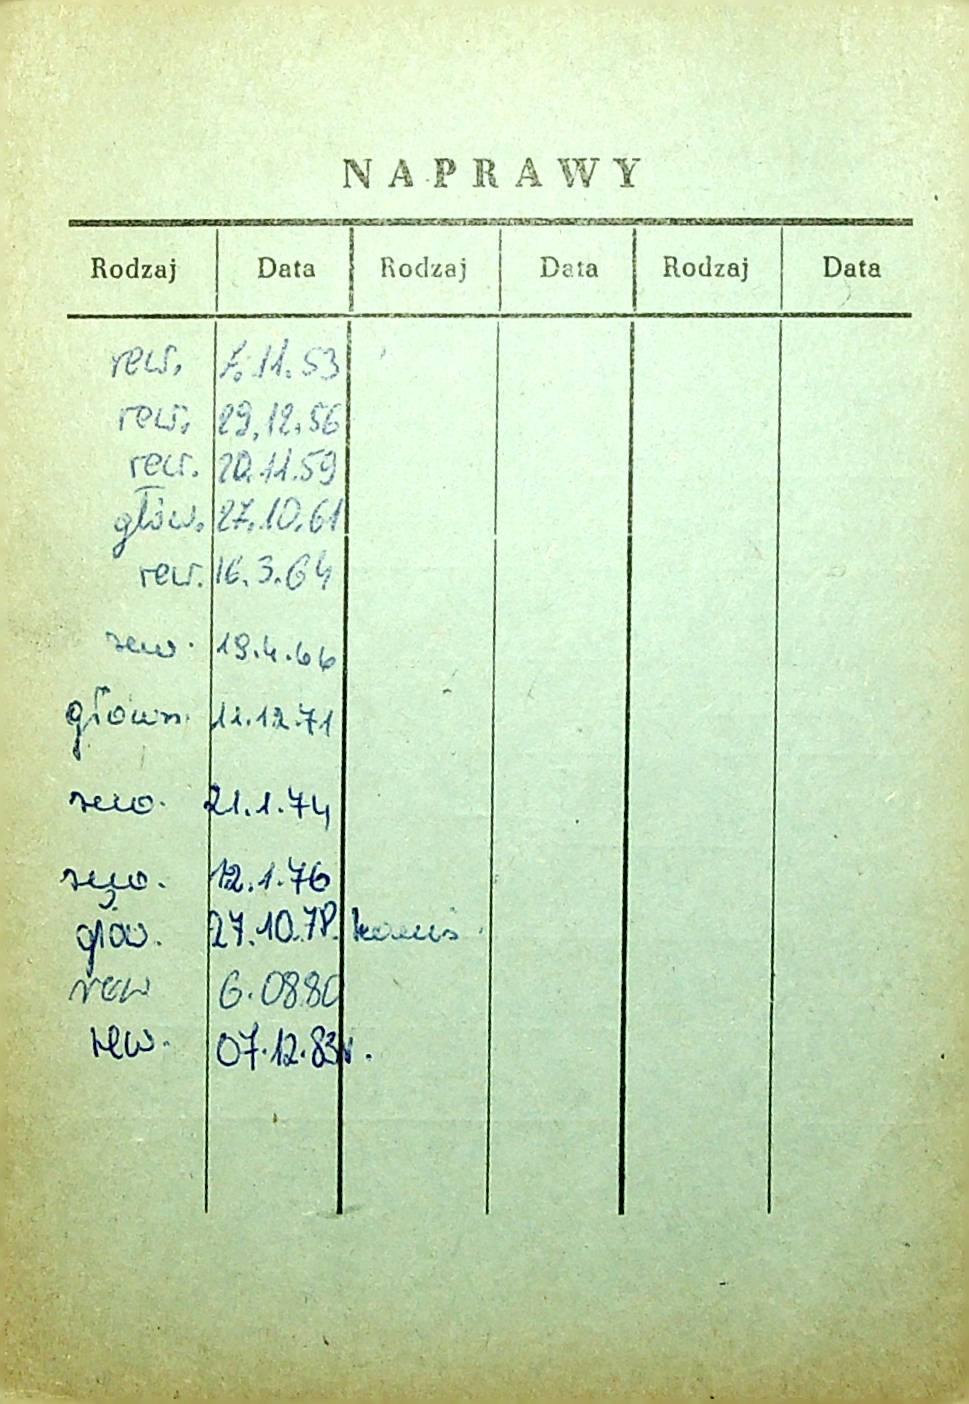 NAPRAWY
Rodzaj Data Rodzaj Data Rodzaj Data
rew. 7.11.53
rew. 29.12.56
rew. 20.11.59
głów. 27.10.61
rew. 16.3.64
rew. 19.4.66
głown. 11.12.71
rew. 21.1.74
rew. 12.1.76
głów. 27.10.78.
rew 6.0880
rew. 07.12.83r.